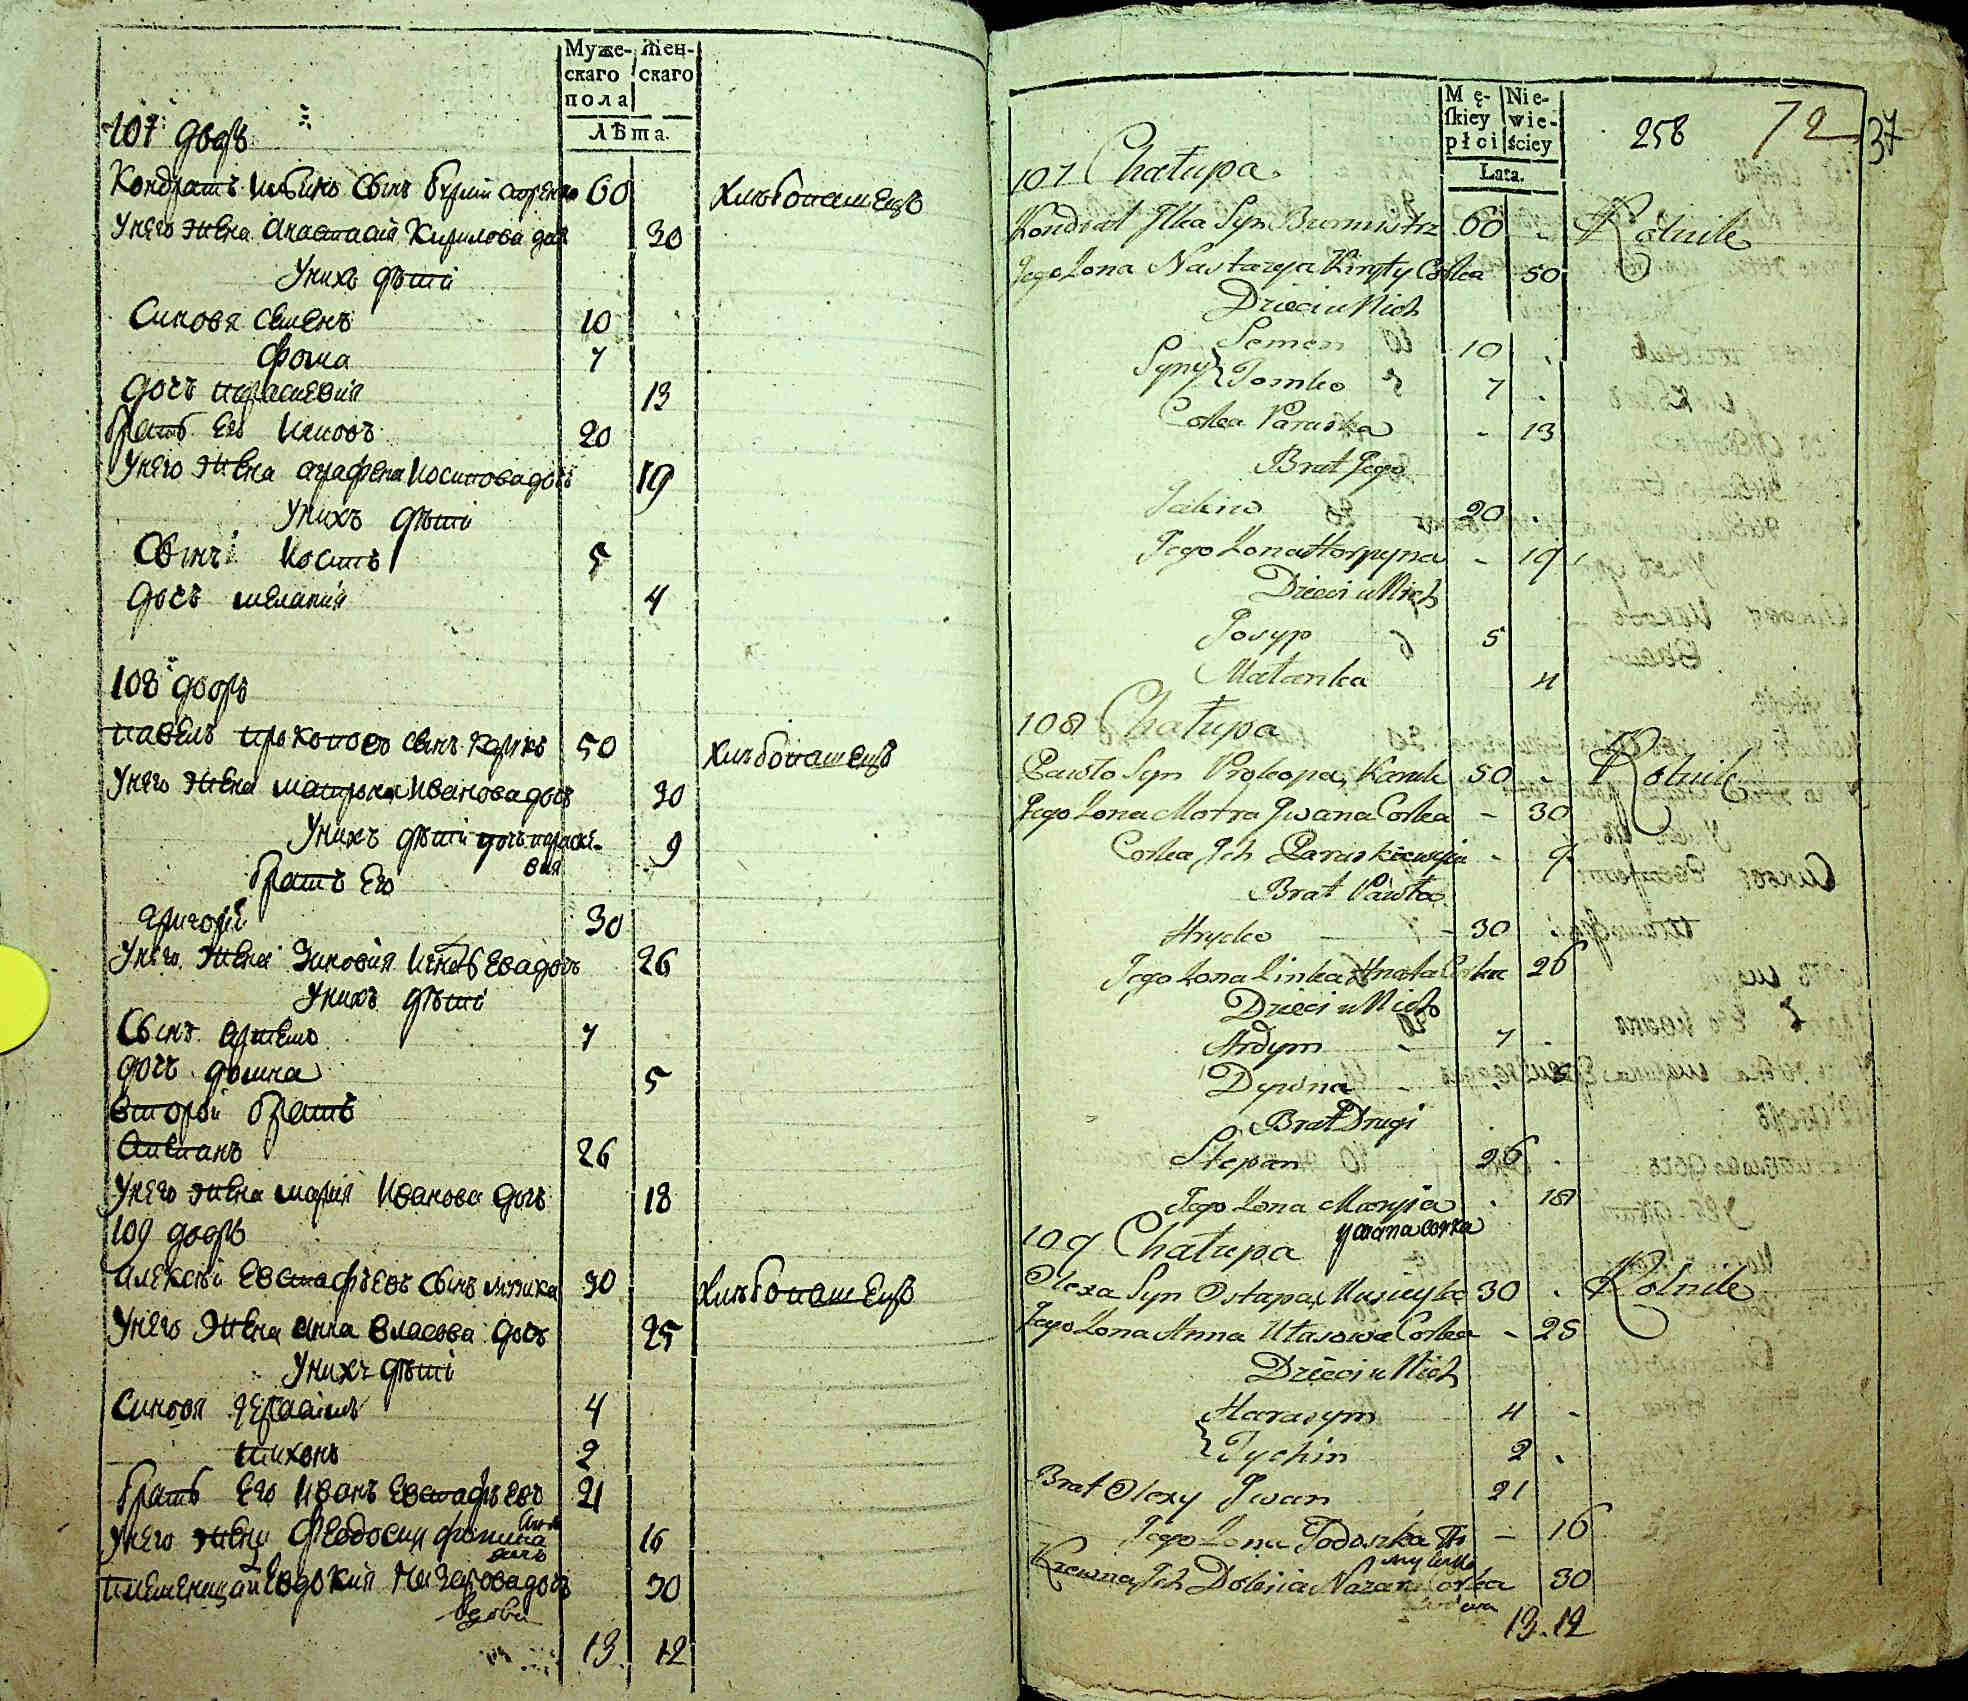 Муже-
скаго
пола
Жен-
скаго
Лѣта.
107 дворъ
Кондратъ Илбинъ сынъ 60 Хлѣбопашецъ
Унего жена Анастасія Кирилова доч 30
Унихъ дѣти
Синовя Семенъ 10
Фома 7
дочъ Параскевія 13
братъ Его Иаковъ 20
Унего жена Агафена Иосипова дочъ 19
Унихъ дѣти
Сынъ Иосипъ 5
дочъ меланія 4
108 дворъ
павелъ прокоповъ сынъ карукъ 50 Хлѣбопашецъ
Унего жена матрона Иванова дочъ 30
Унихъ дѣти дочъ параске-
вия 9
братъ Его
григорій 30
Унего жена Зиновія Игнатьева дочъ 26
Унихъ дѣти
Сынъ артемъ 7
дочъ домна 5
второй братъ
Степанъ 26
Унего жена марія Иванова дочъ 18
109 дворъ
алексѣй Евстафьевъ сынъ музика 30 Хлѣбопашецъ
Унего жена анна власова дочъ 25
Унихъ дѣти
Синовя герасимъ 4
тихонъ 2
братъ Его Иванъ Евстафьевъ 21
Унего жена Феодосия 16
племеница Евдокия дочъ 30
вдова
13 12
Mę-
ſkiey
płci
Nie-
wie-
ściey
Lata.
258 72 37
107 Chałupa
Kondrat Ilka Syn Burmistrz 60 - Rolnik
Jego Zona Nastazya Kiryły Corka 50
Dzieci u Nich
Semen 10 .
Syny Tomko 7 .
Corka Paraska - 13
Brat Jego
Jakiw 20 .
Jego Zona Horpyna - 19
Dzieci u Nich
Josyp 5
Małanka 4
108 Chałupa
Pawło Syn Prokopa, Karuk 50 - Rolnik
Jego Zona Motra Jwana Corka - 30
Corka Jch Paraskiewija - 9
Brat Pawła
Hrycko - 30 .
Jego Zona Zinka Hnata Corka 26
Dzieci u Nich
Ardym - 7 .
Dywna - 5
Brat Drugi
Stepan 26 .
Jego Zona Maryia . 18
Jwana corka
109 Chałupa
Olexa Syn Ostapa, Musiyka 30 . Rolnik
Jego Zona Anna Ułasowa Corka - 25
Dzieci u Nich
Harasym 4 -
Tychin 2 .
Brat Olexy Jwan 21
Jego Zona Todoszka - 16
Krewna Jch Dokija Nazara Corka 30
13. 12